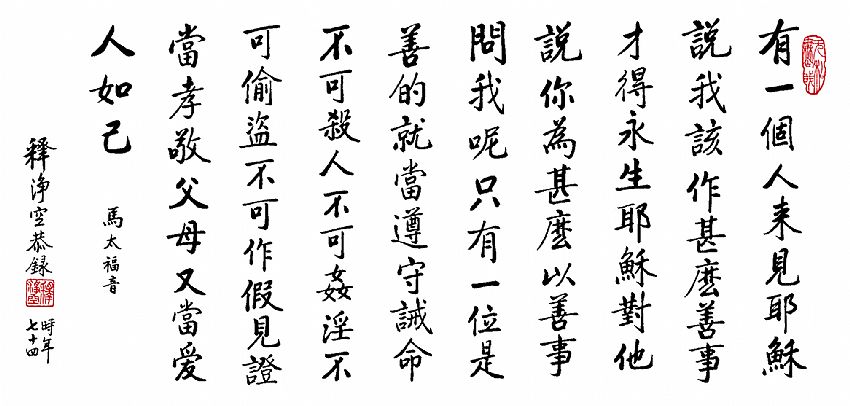 有一個人来見耶穌
說我該作甚麽善事
才得永生耶穌對他
說你為甚麽以善事
問我呢只有一位是
善的就當遵守誡命
不可殺人不可姦淫不
可偷盗不可作假見證
當孝敬父母又當爱
人如己
馬太福音
釋淨空恭録
時年
七十四